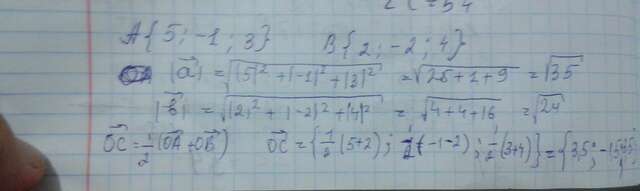 A{5; -1; 3} B{2; -2; 4}
|a⃗| = √((5)² + (-1)² + (3)²) = √(25+1+9) = √35
|b⃗| = √((2)² + (-2)² + (4)²) = √(4+4+16) = √24
OC⃗ = 1/2 (OA⃗ + OB⃗) OC⃗ = {1/2 (5+2); 1/2 (-1-2); 1/2 (3+4)} = {3,5; -1,5;